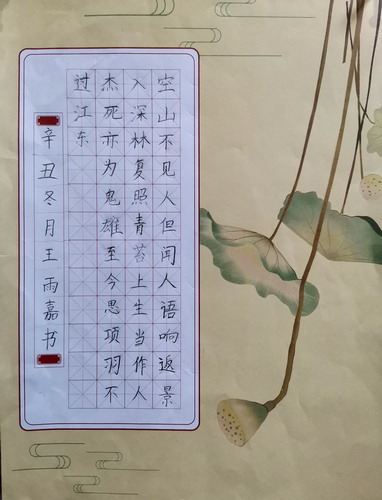 空山不见人但闻人语响返景
入深林复照青苔上生当作人
杰死亦为鬼雄至今思项羽不
过江东
辛丑冬月王雨嘉书